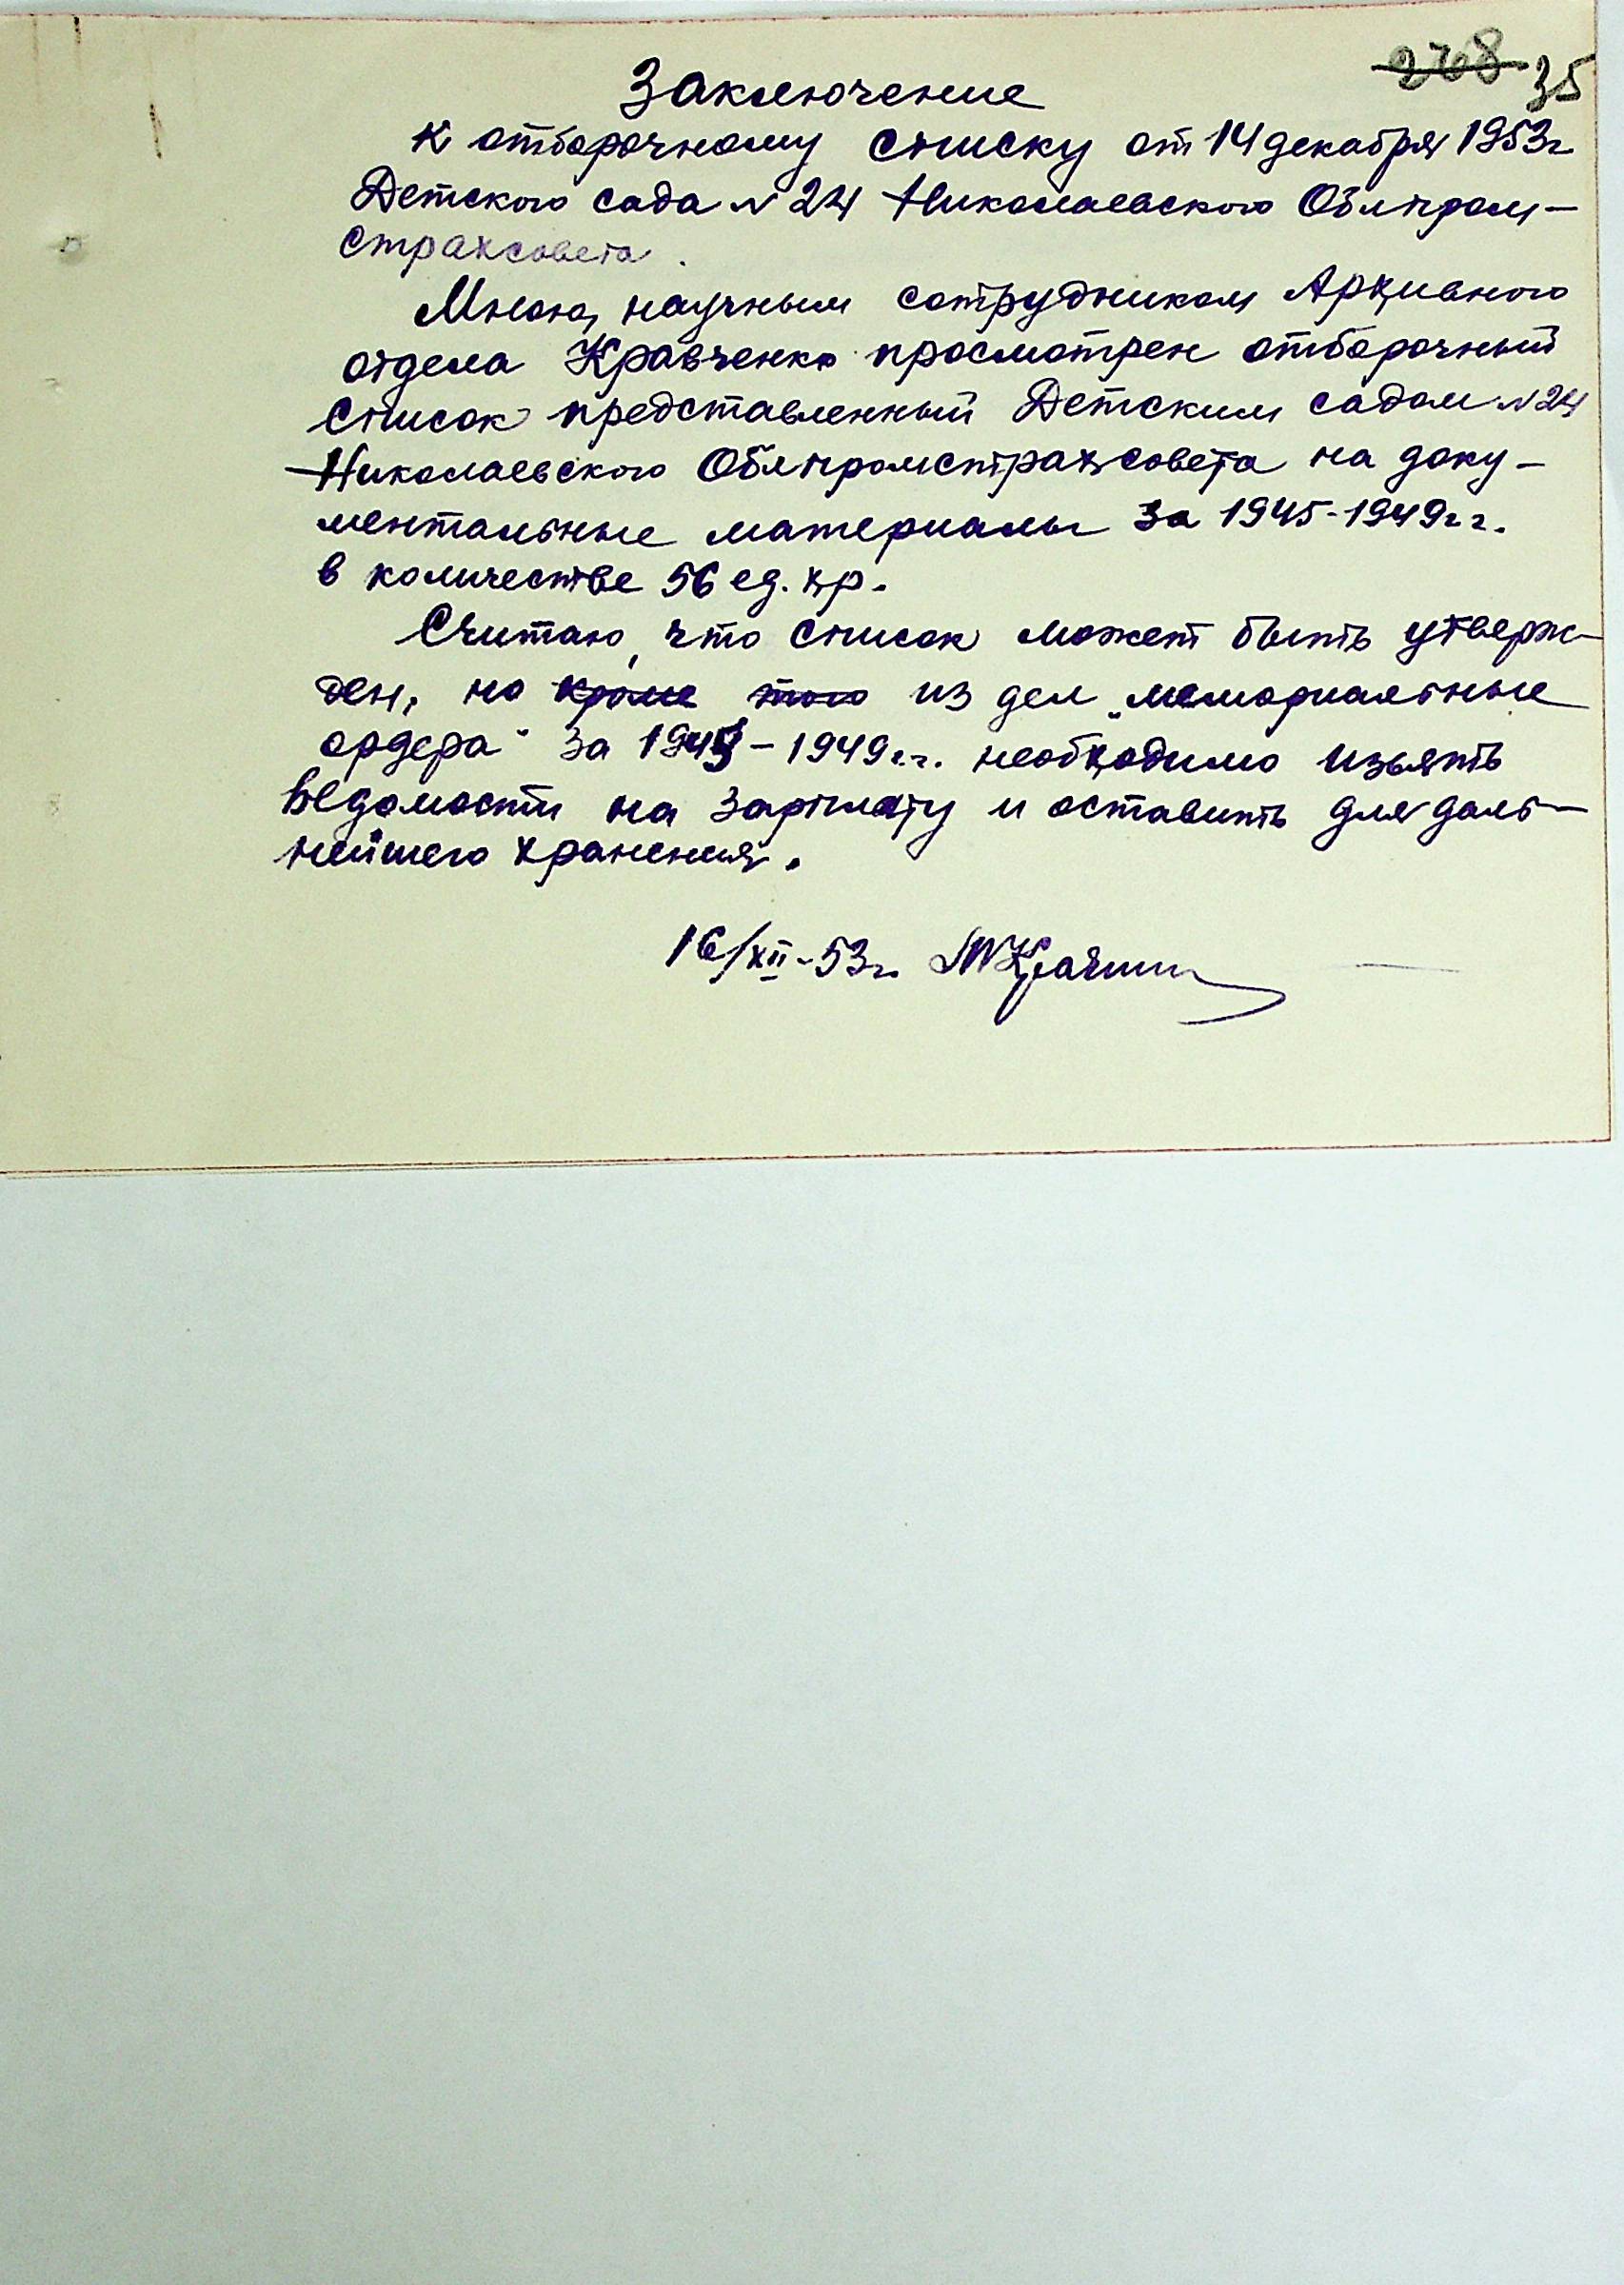 268 35
Заключение
к отборочному списку от 14 декабря 1953г
Детского сада N 24 Николаевского Облпром-
страхсовета.
Мною, научным сотрудником Архивного
отдела Кравченко просмотрен отборочный
список представленный Детским садом N 24
Николаевского Облпромстрахсовета на доку-
ментальные материалы за 1945-1949гг.
в количестве 56 ед. хр.
Считаю, что список может быть утверж-
ден, но кроме того из дел „мемориальные
ордера" за 1945-1949г.г. необходимо изъять
ведомости на зарплату и оставить для даль-
нейшего хранения.
16/XII-53г.